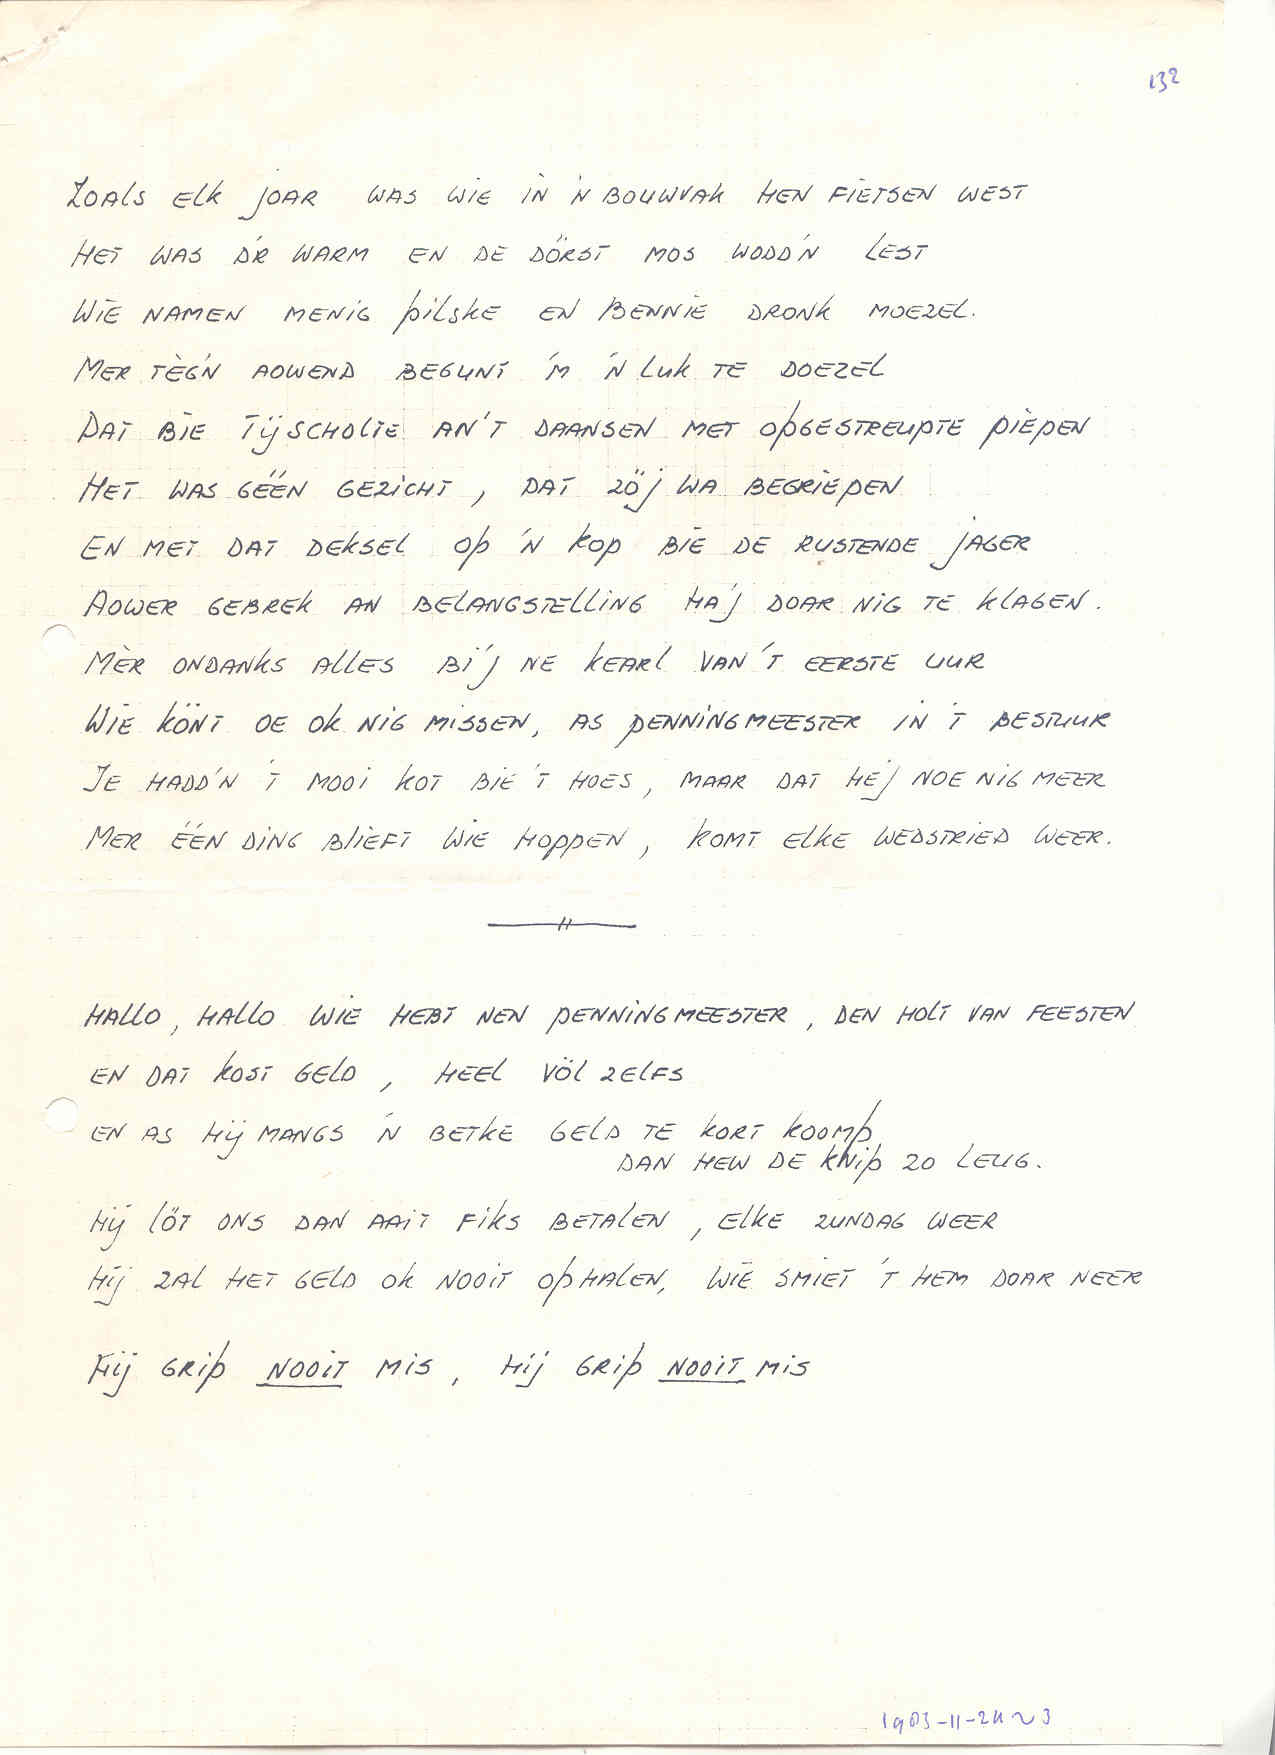 132
Zoals elk joar was wie in 'n bouwvak hen fietsen west
Het was d'r warm en de dörst mos wodd'n lest
Wie namen menig pilske en Bennie dronk moezel.
Mer tèg'n aowend begunt 'm 'n luk te doezel
Dat bie Tijscholte an't daansen met opgestreupte piepen
Het was géén gezicht, dat zö'j wa begriepen
En met dat deksel op 'n kop bie de rustende jager
Aower gebrek an belangstelling ha'j doar nig te klagen.
Mèr ondanks alles bi'j ne kearl van 't eerste uur
Wie könt oe ok nig missen, as penningmeester in 't bestuur
Je hadd'n 't mooi kot bie 't hoes, maar dat hej noe nig meer
Mer één ding blieft wie hoppen, komt elke wedstried weer.
Hallo, hallo wie hebt nen penningmeester, den holt van feesten
en dat kost geld, heel völ zelfs
en as hij mangs 'n betke geld te kort koomp
dan hew de knip zo leug.
Hij löt ons dan aait fiks betalen, elke zundag weer
Hij zal het geld ok nooit ophalen, wie smiet 't hem doar neer
Hij grip nooit mis, hij grip nooit mis